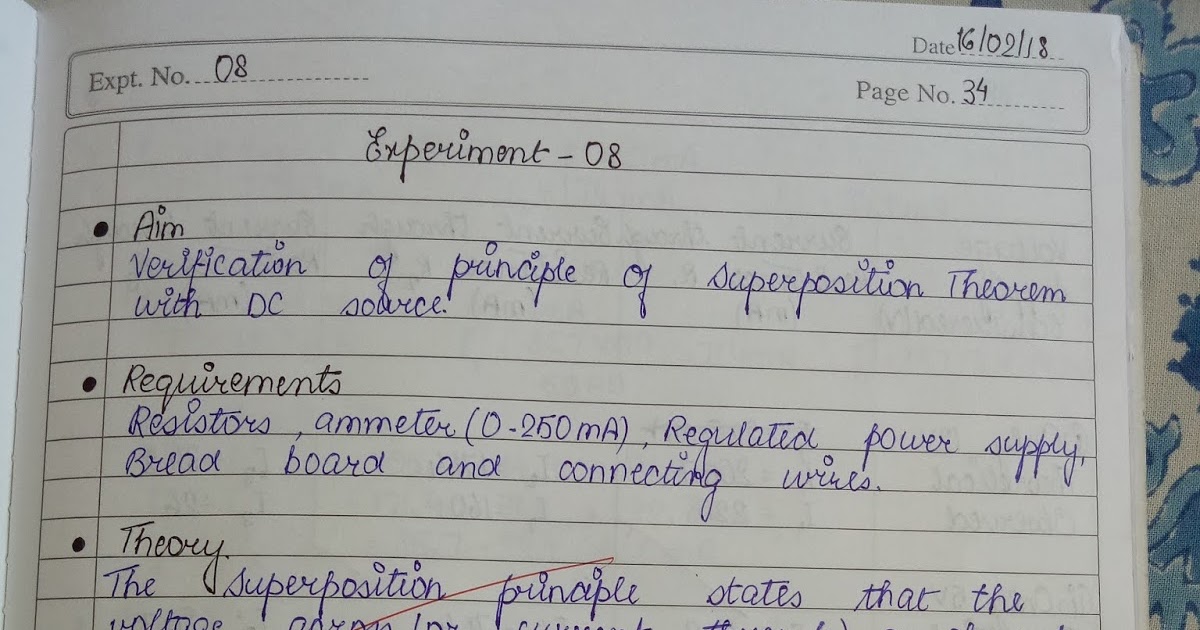 Date 16/02/18
Expt. No. 08
Page No. 34
Experiment - 08
• Aim
Verification of principle of Superposition Theorem
with DC source.
• Requirements
Resistors, ammeter (0-250mA), Regulated power supply,
Bread board and connecting wires.
• Theory.
The superposition principle states that the
voltage across (or current through)